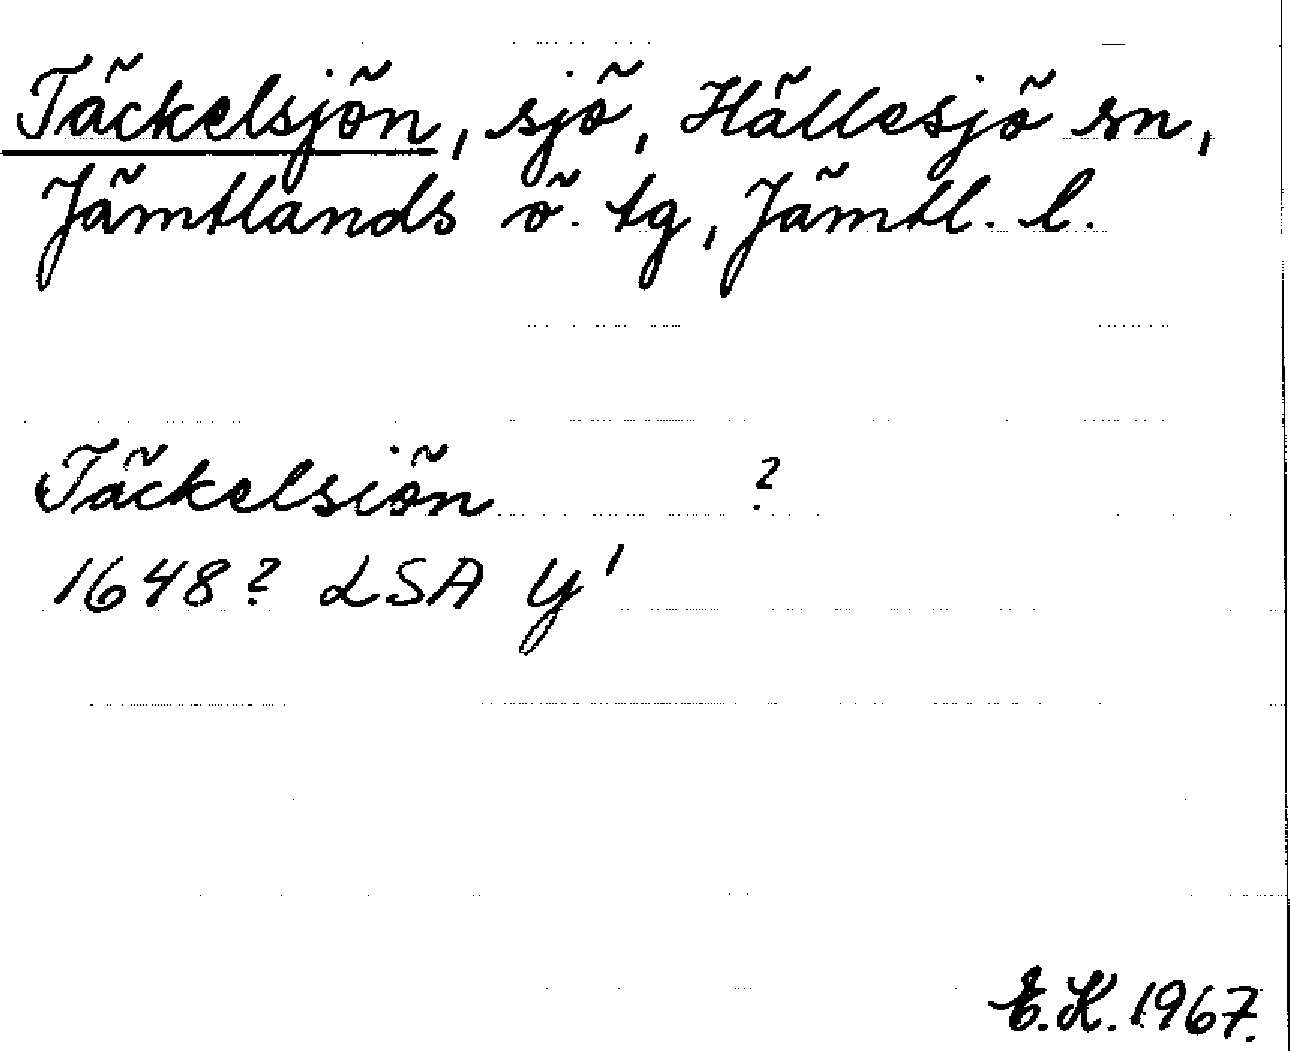 Täckelsjön, sjö, Hällesjö sn,
Jämtlands ö. tg, Jämtl. l.
Täckelsiön ?
1648? LSA Y'
E.K. 1967.